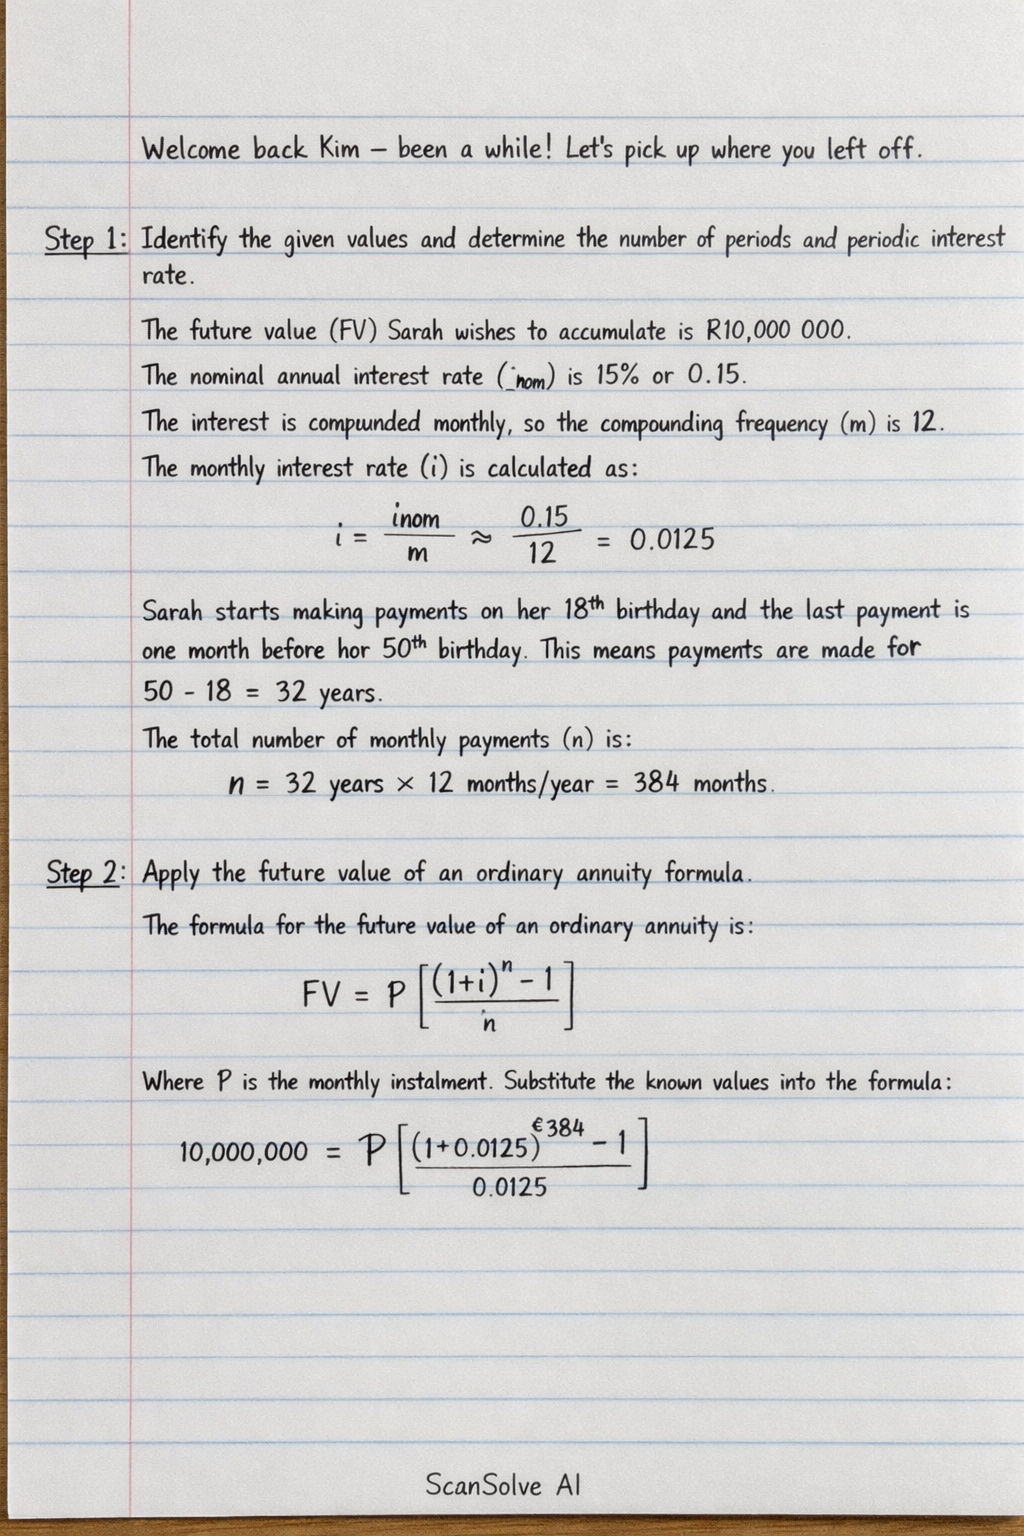 Welcome back Kim – been a while! Let's pick up where you left off.
Step 1: Identify the given values and determine the number of periods and periodic interest
rate.
The future value (FV) Sarah wishes to accumulate is R10,000 000.
The nominal annual interest rate (i_nom) is 15% or 0.15.
The interest is compunded monthly, so the compounding frequency (m) is 12.
The monthly interest rate (i) is calculated as:
i = inom/m ≈ 0.15/12 = 0.0125
Sarah starts making payments on her 18th birthday and the last payment is
one month before hor 50th birthday. This means payments are made for
50 - 18 = 32 years.
The total number of monthly payments (n) is:
n = 32 years × 12 months/year = 384 months.
Step 2: Apply the future value of an ordinary annuity formula.
The formula for the future value of an ordinary annuity is:
FV = P [((1+i)^n - 1)/n]
Where P is the monthly instalment. Substitute the known values into the formula:
10,000,000 = P [((1+0.0125)^€384 - 1)/0.0125]
ScanSolve AI